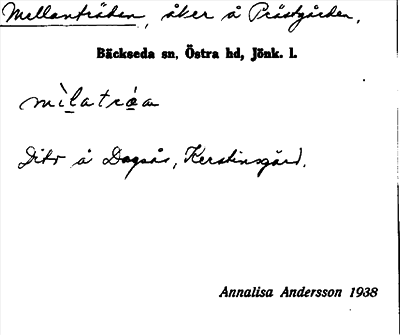 Mellanträden, åker å Prästgården,
Bäckseda sn, Östra hd, Jönk. l.
mìlatrǫ́a
Dito å Dagsås, Kerstinsgård.
Annalisa Andersson 1938